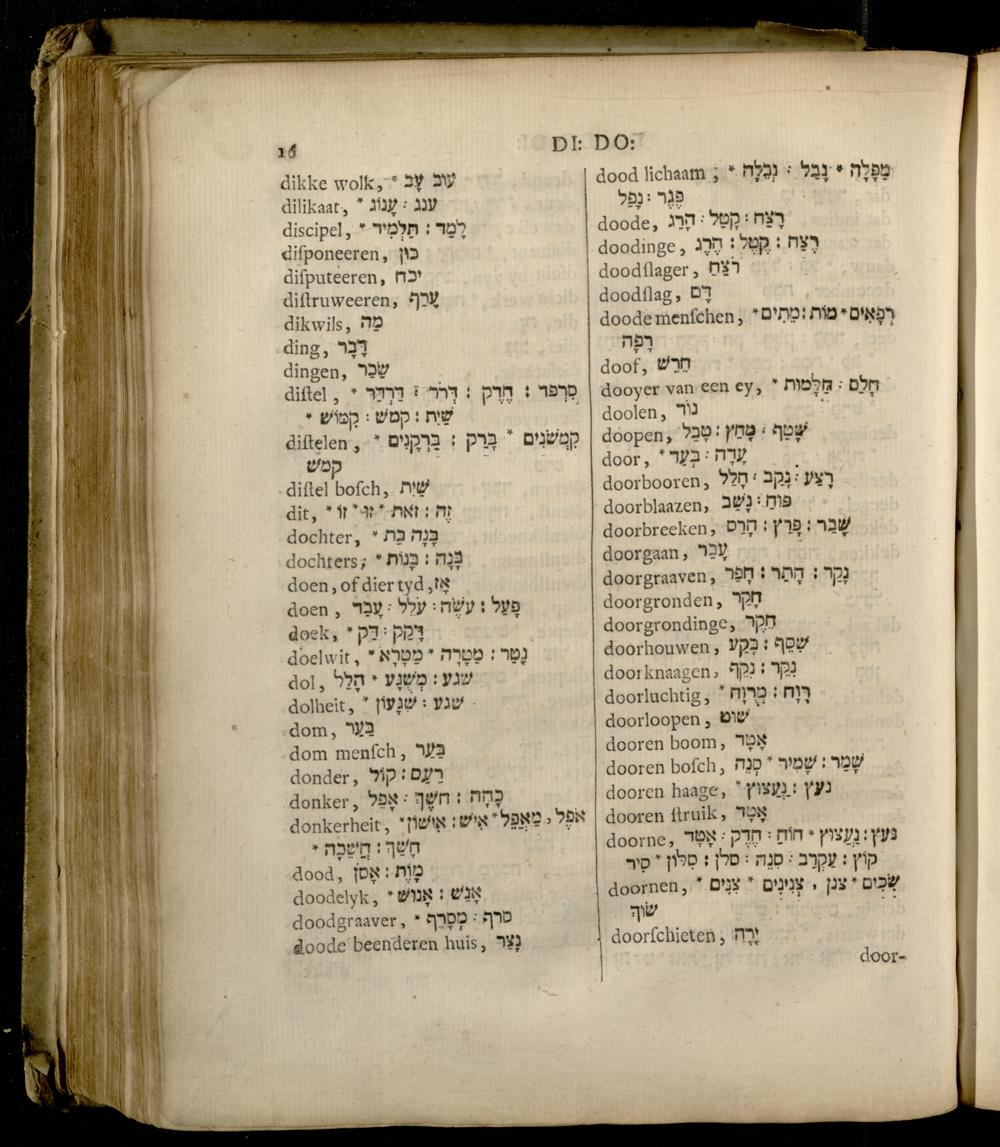 16
DI: DO:
dikke wolk, * עוב עָב
dilikaat, * ענג : עָנוֹג
discipel, * לָמַד : תַּלְמִיד
diſponeeren, כּוּן
diſputeeren, יכח
diſtruweeren, עָרַף
dikwils, מַה
ding, דָּבָר
dingen, שָׂכַר
diſtel, * סִרְפַּד : חֶדֶק : דְּרֹר : דַּרְדַּר
* שַׁיִת : קמש : קִמּוֹשׁ
diſtelen, * קִמְּשׂנִים * בָּרַק : בַּרְקָנִים
קמש
diſtel boſch, שַׁיִת
dit, * זֶה : זֹאת * זוּ * זוֹ
dochter, * בָּנָה בַּת
dochters, * בָּנָה : בָּנוֹת
doen, of dier tyd, אָז
doen, פָּעַל : עָשָׂה : עָלַל : עָבַד
doek, * דָּקַק : דַּק
doelwit, * נָטַר : מַטָּרָה * מַטָּרָא
dol, שגע : מְשֻׁגָּע * הָלַל
dolheit, * שגע : שִׁגָּעוֹן
dom, בַּעַר
dom menſch, בַּעַר
donder, רַעַם : קוֹל
donker, כָּהָה : חשֶׁךְ : אָפֵל
donkerheit, * אֹפֶל, מַאֲפֵל * אִישׁ : אִישׁוֹן
* חָשַׁךְ : חֲשֵׁכָה
dood, מָוֶת : אָסֹן
doodelyk, * אָנַשׁ : אָנוּשׁ
doodgraaver, * סרף : מְסָרֵף
doode beenderen huis, נָצַר
dood lichaam, * מַפָּלָה * נָבַל : נְבֵלָה
פֶּגֶר : נָפַל
doode, רָצַח : קָטַל : הָרַג
doodinge, רֶצַח : קֶטֶל : הֶרֶג
doodſlager, רֹצֵחַ
doodſlag, דָּם
doode menſchen, * רְפָאִים * מוּת : מֵתִים
רָפָה
doof, חֵרֵשׁ
dooyer van een ey, * חָלַם : חַלָּמוּת
doolen, נוּד
doopen, שָׁטַף : מָחַץ : טָבַל
door, * עָדָה : בְּעַד
doorbooren, רָצַע : נָקַב : חָלַל
doorblaazen, פּוּחַ : נָשַׁב
doorbreeken, שָׁבַר : פָּרַץ : הָרַס
doorgaan, עָבַר
doorgraaven, נָקַר : חָתַר : חָפַר
doorgronden, חָקַר
doorgrondinge, חֵקֶר
doorhouwen, שִׁסֵּף : בָּקַע
doorknaagen, נִקֵּר : נִקֵּף
doorluchtig, * רָוַח : מְרֻוָּח
doorloopen, שׁוּט
dooren boom, אָטָד
dooren boſch, שָׁמַר : שָׁמִיר * סְנֶה
dooren haage, * נעץ : נַעֲצוּץ
dooren ſtruik, אָטָד
doorne, נעץ : נַעֲצוּץ * חוֹחַ : חֶדֶק : אָטָד
קוֹץ : עַקְרָב : סְנֶה : סלן : סִלּוֹן * סִיר
doornen, * שִׂכִּים * צנן, צְנִינִים * צִנִּים
שׂוּךְ
doorſchieten, יָרָה
door-